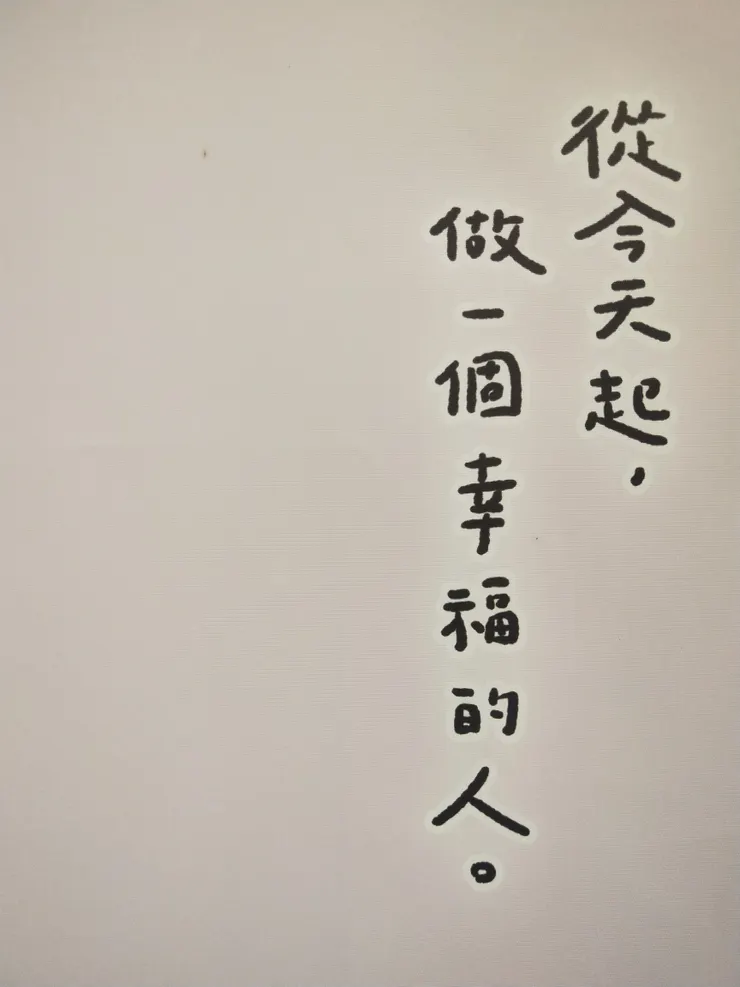 從今天起，
做一個幸福的人。